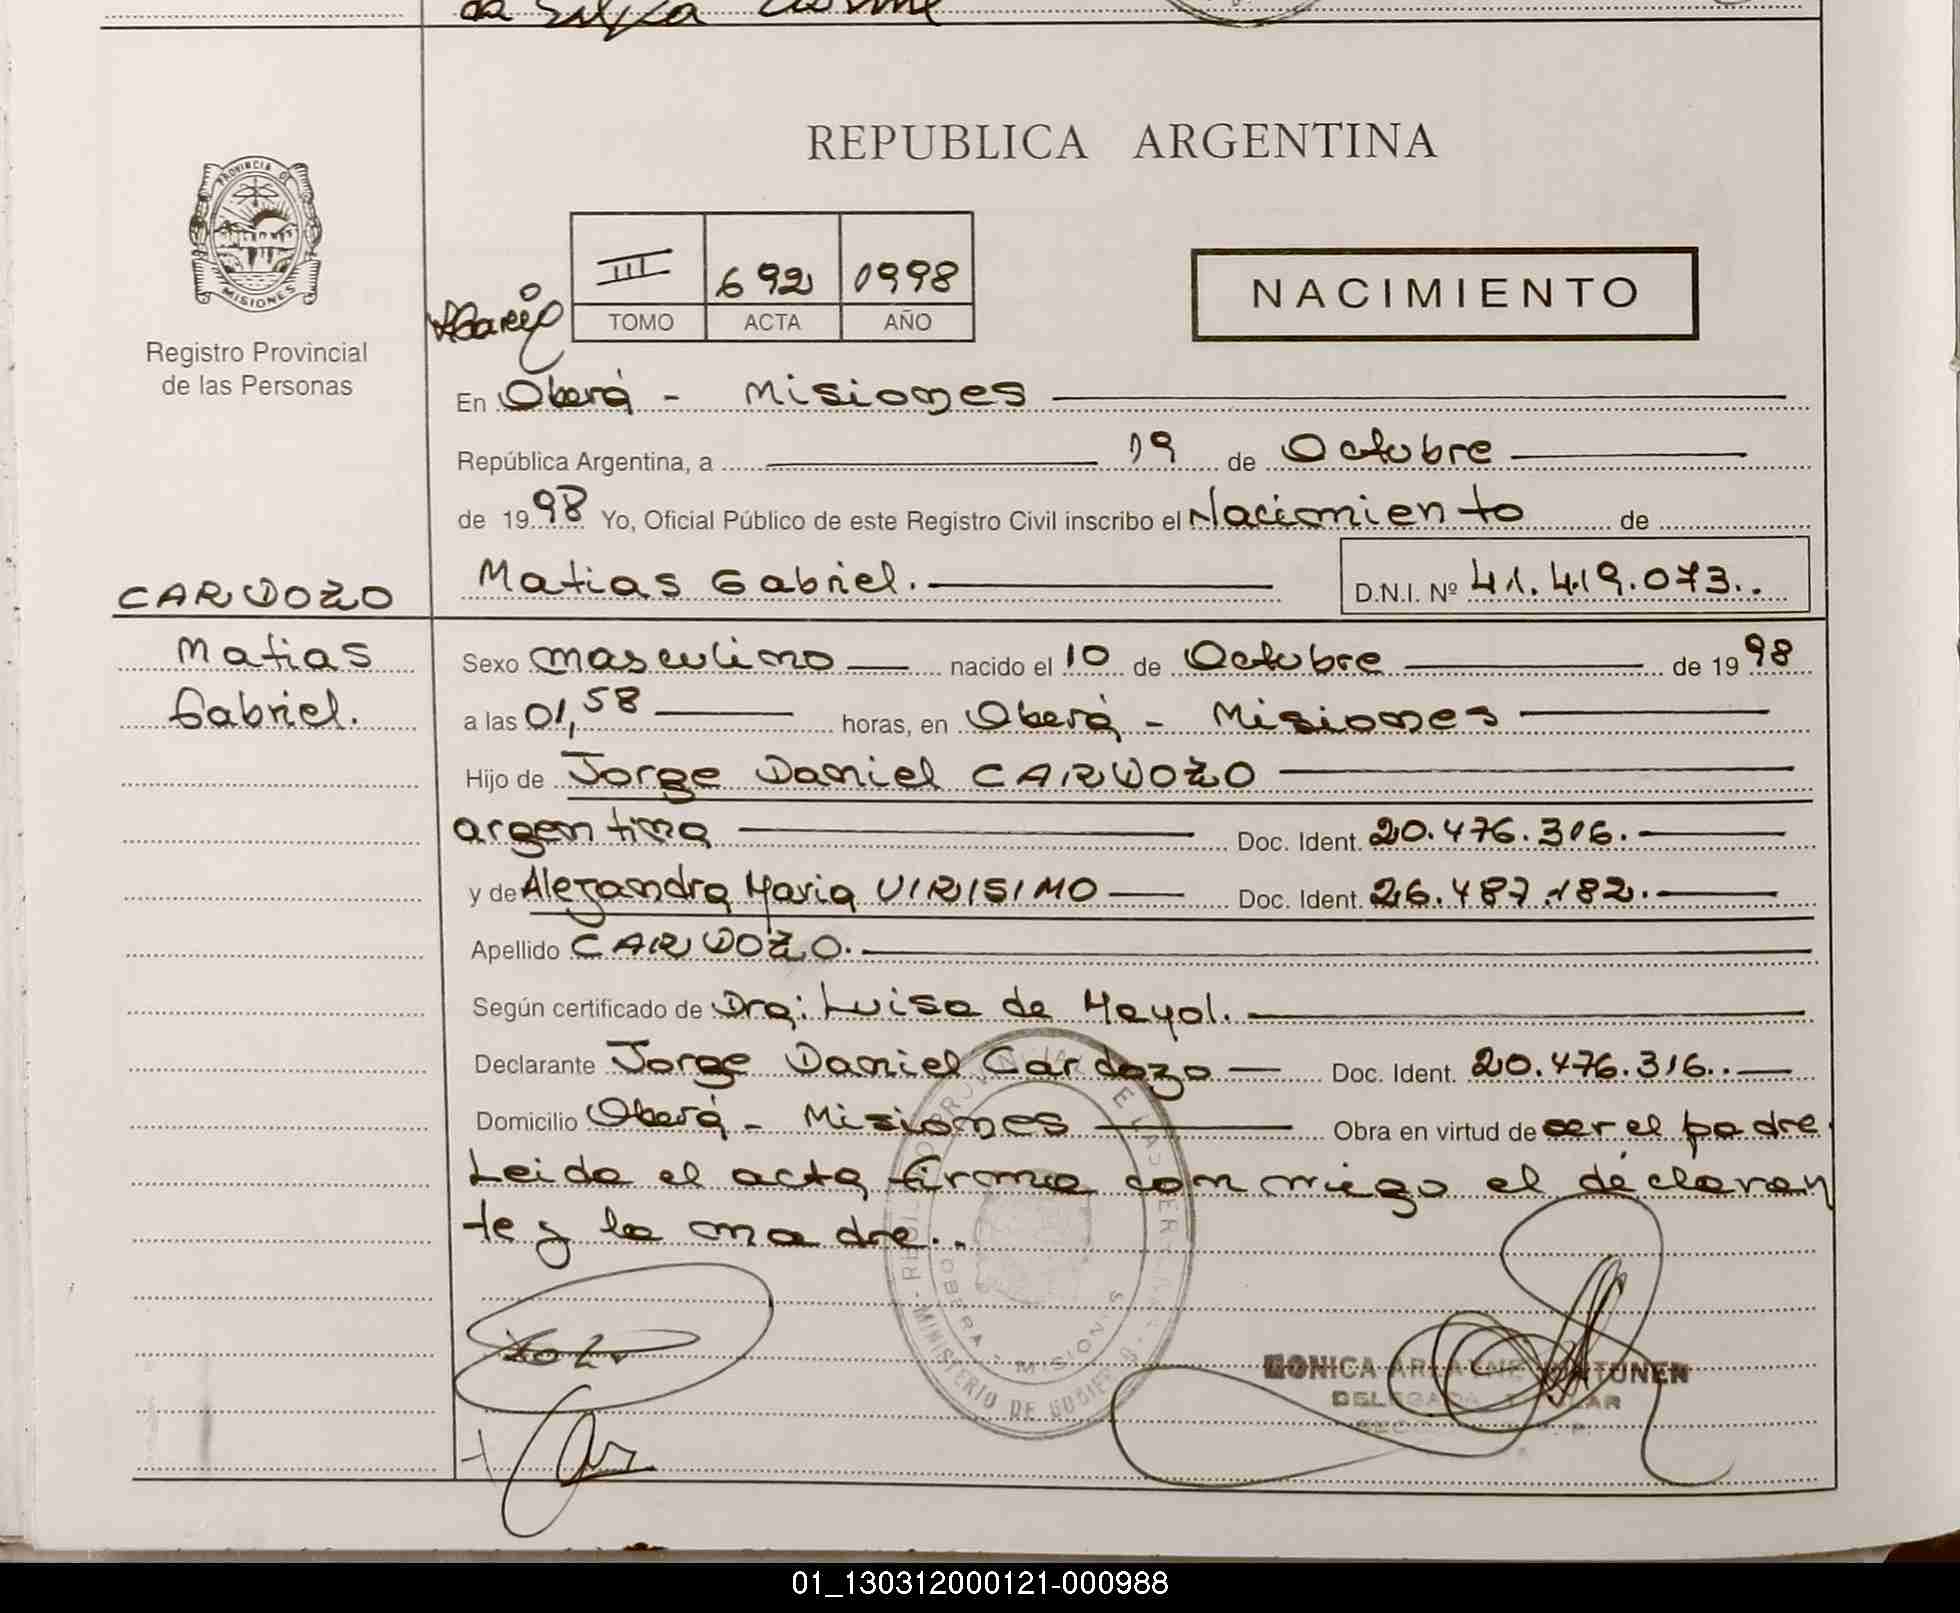 da Silva
REPUBLICA ARGENTINA
PROVINCIA DE
MISIONES
Registro Provincial
de las Personas
III 692 1998
TOMO ACTA AÑO
NACIMIENTO
En Oberá - Misiones
República Argentina, a 19 de Octubre
de 1998 Yo, Oficial Público de este Registro Civil inscribo el Nacimiento de
CARDOZO Matias Gabriel. D.N.I. Nº 41.419.073..
Matias Sexo masculino nacido el 10 de Octubre de 1998
Gabriel. a las 01,58 horas, en Oberá - Misiones
Hijo de Jorge Daniel CARDOZO
argentina Doc. Ident. 20.476.316.
y de Alejandra Maria VIRISIMO Doc. Ident. 26.487.182.
Apellido CARDOZO.
Según certificado de Dra: Luisa de Mayol.
Declarante Jorge Daniel Cardozo Doc. Ident. 20.476.316..
Domicilio Oberá - Misiones Obra en virtud de ser el padre.
Leida el acta firma conmigo el declaran
te y la madre..
OBERA - MISIONES
MINISTERIO DE GOBIERNO
MONICA
DELEGADA TITULAR
01_130312000121-000988